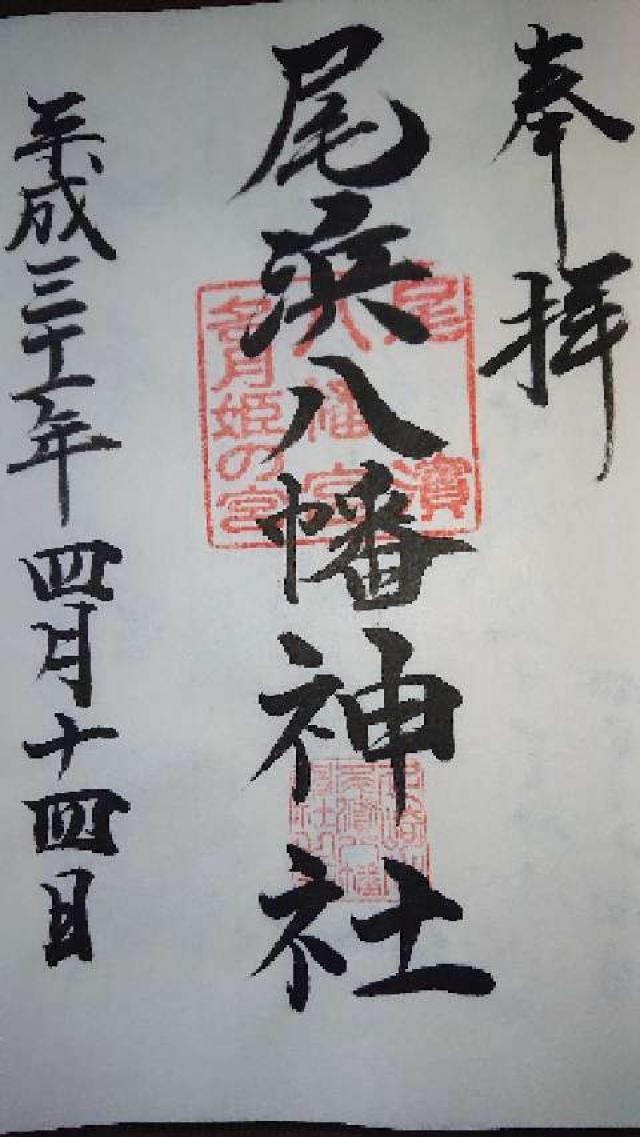 奉拝
尾浜八幡神社
尾濱
八幡宮
名月姫の宮
平成三十一年四月十四日